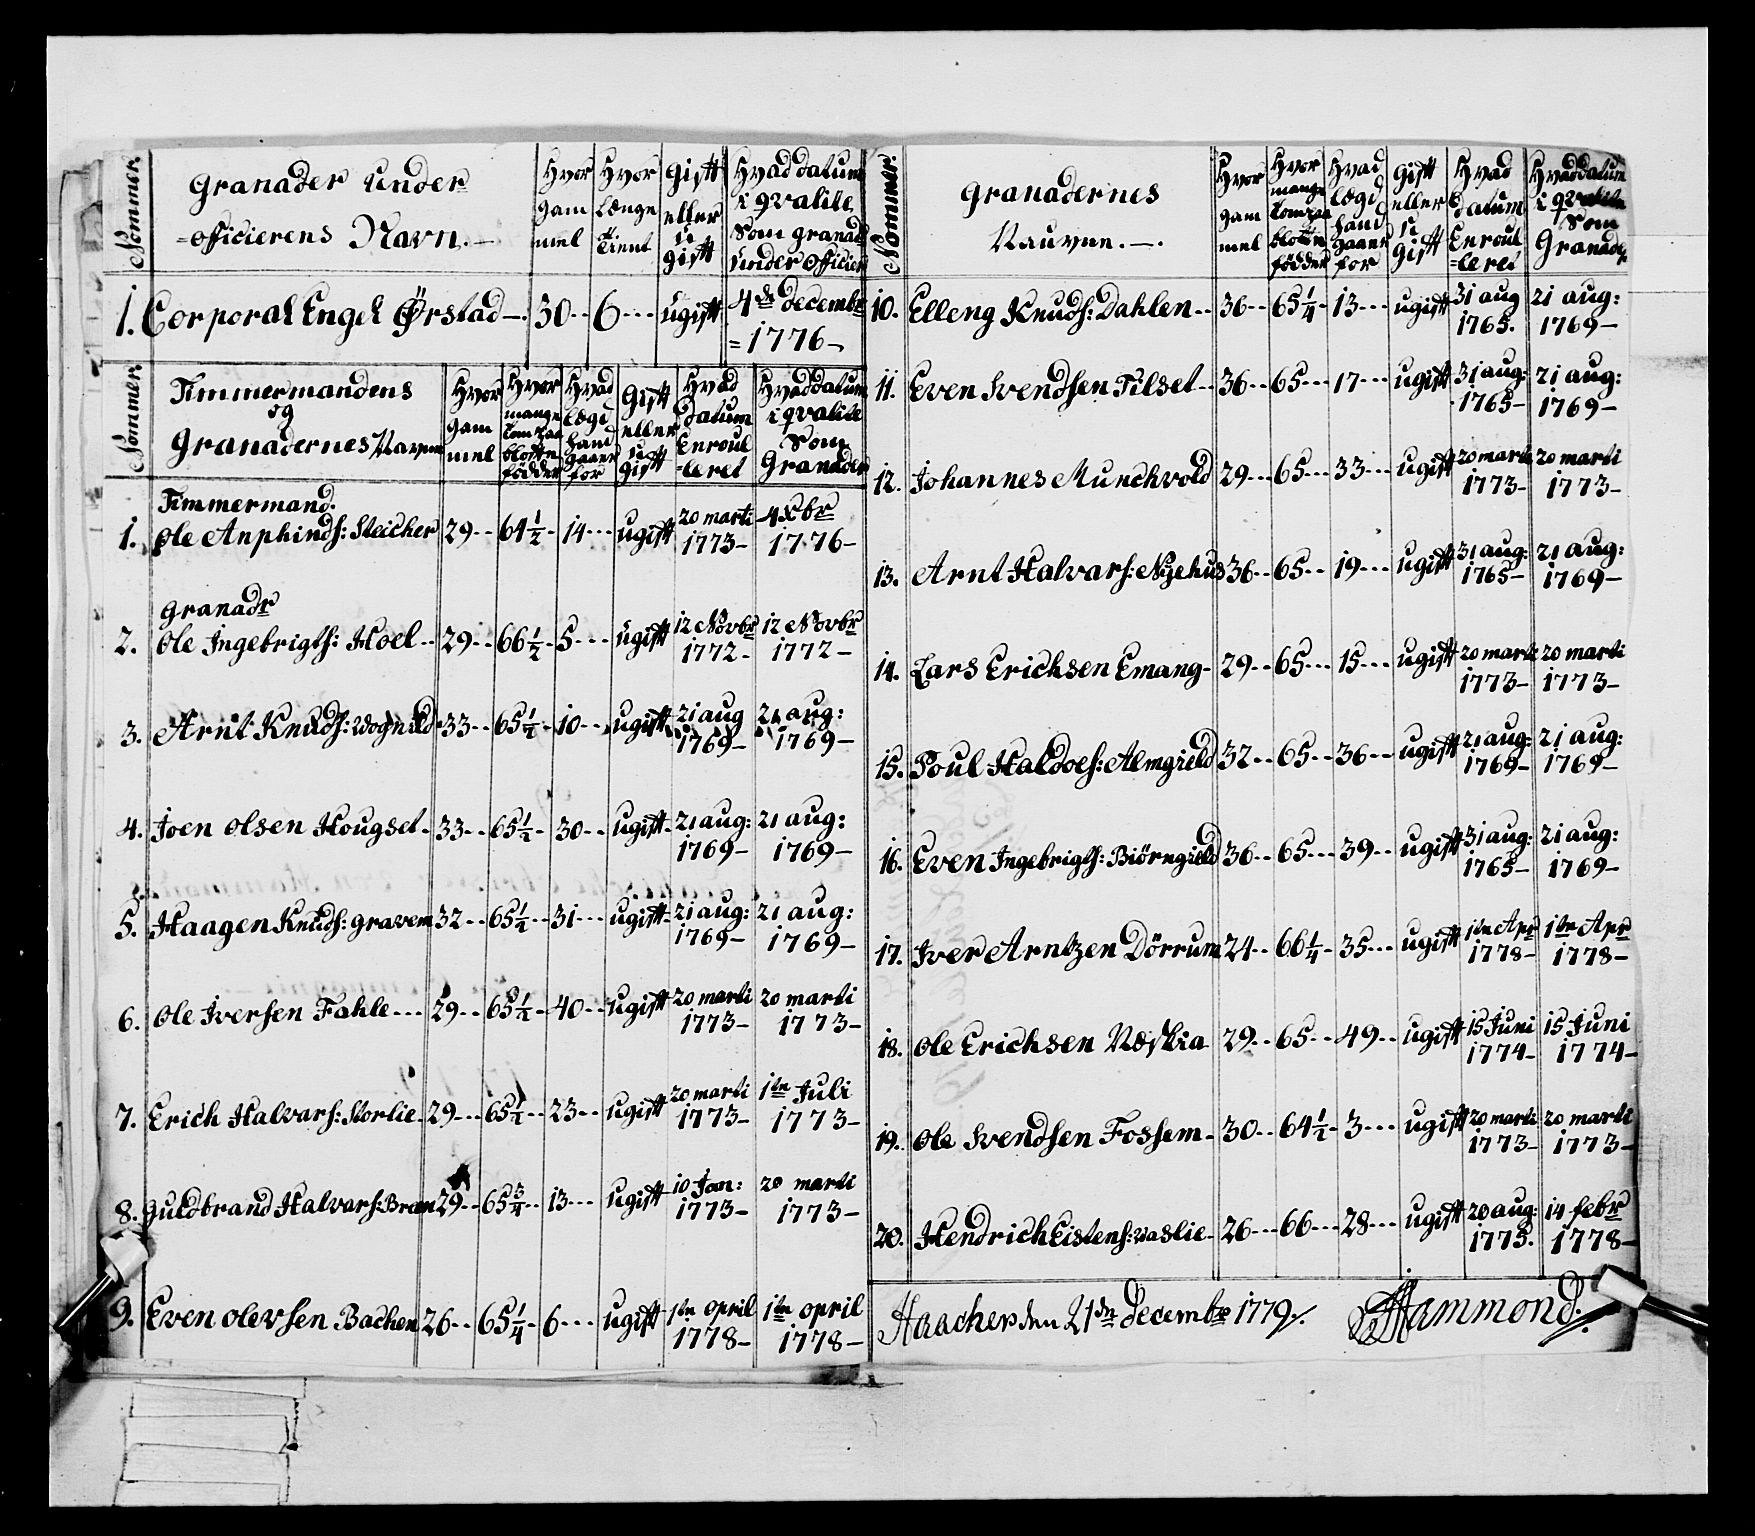 Nommer.
Granader Under
=officierens Navn.—
Hvor gam mel
Hvor Længe tient
Gift eller ugift
Hvad datum i qvalite Som granad Under officier
1. Corporal Engel Örstad —. 30-- 6--- ugift 4de decembr =1776—
Nommer.
Timmermandens og Granadernes Navne
Hvor gam mel
Hvor mange tom paa blotte födder
Hvad Lægd hand gaaer for
Gift eller ugift
Hvad datum Enroul =leret
Hvad datum i qvalite Som Granader
Timmermand.
1. Ole Anphinds: Steicher 29-- 64 1/2 - 14--- ugift 20 marti 1773— 4 Xbr 1776—
Granadr
2. Ole Ingebrigts: Hoel-- 29-- 66 1/2 - 5--- ugift 12 Novbr 1772— 12 Novbr 1772—
3. Arnt Knuds: Wognild 33-- 65 1/2 - 10--- ugift 21 aug 1769— 21 aug: 1769—
4. Joen Olsen Hougset- 33-- 65 1/2 - 30-- ugift- 21 aug: 1769— 21 aug: 1769—
5. Haagen Knuds: Gravem 32-- 65 1/2 -- 31--- ugift- 21 aug: 1769— 21 aug: 1769—
6. Ole Iversen Fahle--- 29-- 65 1/2 - 40-- ugift 20 marti 1773— 20 marti 1773—
7. Erich Halvars: Storlie- 29--- 65 1/2 -- 23-- ugift 20 marti 1773— 1te Juli 1773—
8. Guldbrand Halvars: Bram 29-- 65 3/4 -- 13--- ugift 10 Jan: 1773— 20 marti 1773—
9. Even Olevsen Bachen 26-- 65 1/4 - 6--- ugift 1te April 1778— 1te April 1778—
Nommer.
Granadernes Navne.—.
Hvor gam mel
Hvor mange tom paa blotte födder
Hvad Lægd hand gaaer for
Gift eller ugift
Hvad datum Enroul =leret
Hvad datum i qvalite Som Granader
10. Elleng Knuds: Dahlen-- 36-- 65 1/4 - 13--- ugift 31 aug 1765. 21 aug: 1769—
11. Even Svendsen Tilset-- 36-- 65--- 17--- ugift 31 aug: 1765— 21 aug: 1769—
12. Johannes Munchvold 29--- 65--- 33--- ugift 20 marti 1773— 20 marti 1773—
13. Arnt Halvars: Nyehus 36-- 65--- 19--- ugift 31 aug: 1765— 21 aug: 1769—
14. Lars Erichsen Emang- 29--- 65--- 15--- ugift 20 marti 1773— 20 marti 1773—
15. Poul Haldoes: Almgield 32-- 65--- 36--- ugift 21 aug: 1769— 21 aug: 1769—
16. Even Ingebrigts: Biörngield 36-- 65--- 39-- ugift 31 aug: 1765— 21 aug: 1769—
17. Iver Arntzen Dörrum 24-- 66 1/4 - 35--- ugift 1te Apr 1778— 1te Apr 1778—
18. Ole Erichsen 29-- 65-- 49-- ugift 15 Juni 1774— 15 Juni 1774—
19. Ole Svendsen Fossem- 30-- 64 1/2 - 3--- ugift 20 marti 1773— 20 marti 1773—
20. Hendrich Eistens: Waslie- 26--- 66--- 28--- ugift 20 aug: 1775. 14 febr 1778—
Haacher den 21de decembr 1779/. Hammond.